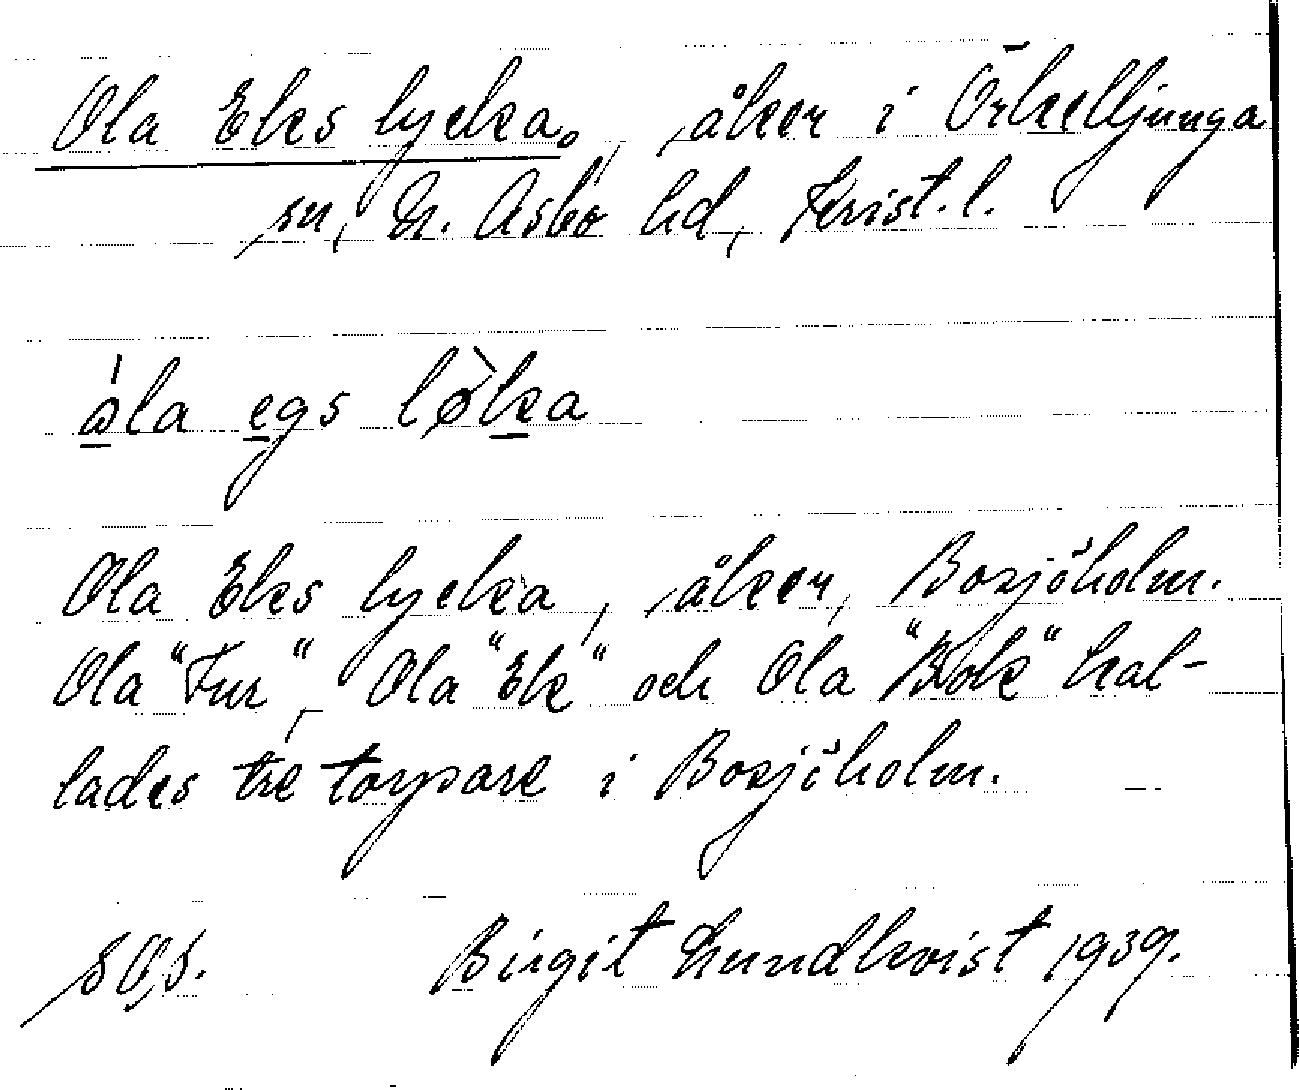 Ola Eks lycka, åker i Örkelljunga
sn, N. Åsbo hd, Krist. l.
åla egs løka
Ola Eks lycka, åker, Bosjöholm.
Ola "Fur", Ola "Ek" och Ola "Bok" kal-
lades tre torpare i Bosjöholm.
Birgit Lundkvist 1939.